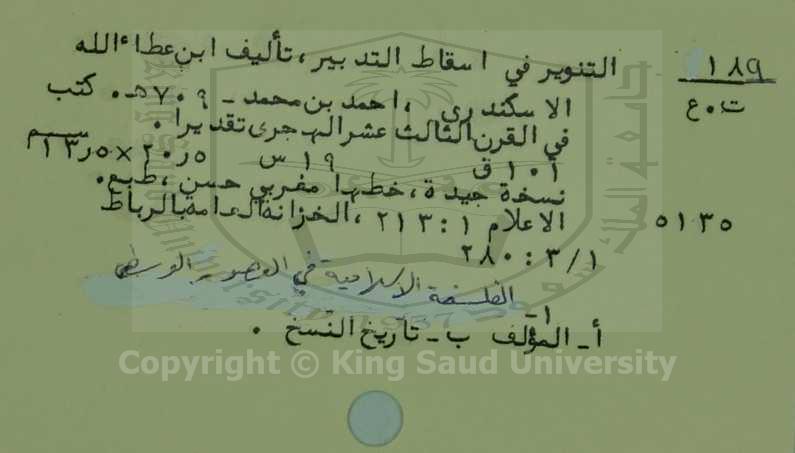 ١٨٩
ت.ع
التنوير في اسقاط التدبير، تأليف ابن عطاء الله
الاسكندري، احمد بن محمد - ٧٠٩هـ. كتب
في القرن الثالث عشر الهجرى تقديرا.
١٠١ ق ١٩ س ٢٠٫٥×١٣٫٥ سم
نسخة جيدة، خطها مغربي حسن، طبع.
٥١٣٥
الاعلام ١ : ٢١٣، الخزانة العامة بالرباط
٣/١ : ٢٨٠
١- الفلسفة الاسلامية في العصور الوسطى
أ- المؤلف ب- تاريخ النسخ.
Copyright © King Saud University